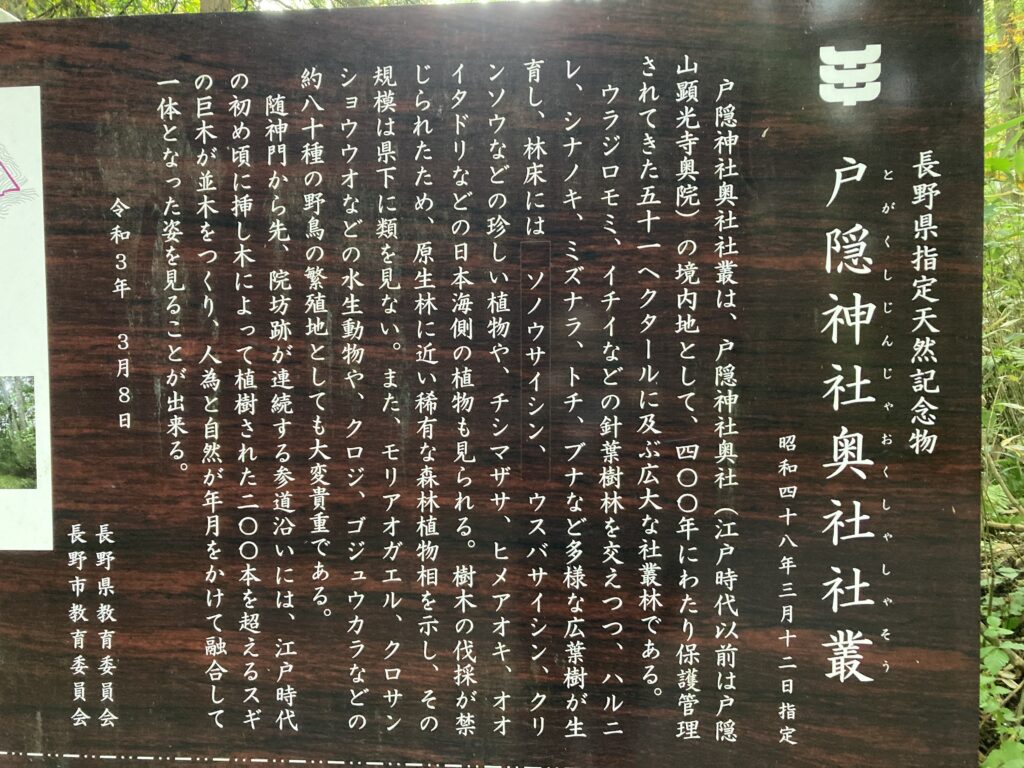 長野県指定天然記念物
戸隠神社奥社社叢
とがくしじんじゃおくしゃしゃそう
昭和四十八年三月十二日指定
戸隠神社奥社社叢は、戸隠神社奥社（江戸時代以前は戸隠
山顕光寺奥院）の境内地として、四〇〇年にわたり保護管理
されてきた五十一ヘクタールに及ぶ広大な社叢林である。
ウラジロモミ、イチイなどの針葉樹林を交えつつ、ハルニ
レ、シナノキ、ミズナラ、トチ、ブナなど多様な広葉樹が生
育し、林床には　ソノウサイシン、　ウスバサイシン、クリ
ンソウなどの珍しい植物や、チシマザサ、ヒメアオキ、オオ
イタドリなどの日本海側の植物も見られる。樹木の伐採が禁
じられたため、原生林に近い稀有な森林植物相を示し、その
規模は県下に類を見ない。また、モリアオガエル、クロサン
ショウウオなどの水生動物や、クロジ、ゴジュウカラなどの
約八十種の野鳥の繁殖地としても大変貴重である。
随神門から先、院坊跡が連続する参道沿いには、江戸時代
の初め頃に挿し木によって植樹された二〇〇本を超えるスギ
の巨木が並木をつくり、人為と自然が年月をかけて融合して
一体となった姿を見ることが出来る。
令和３年　３月８日
長野県教育委員会
長野市教育委員会